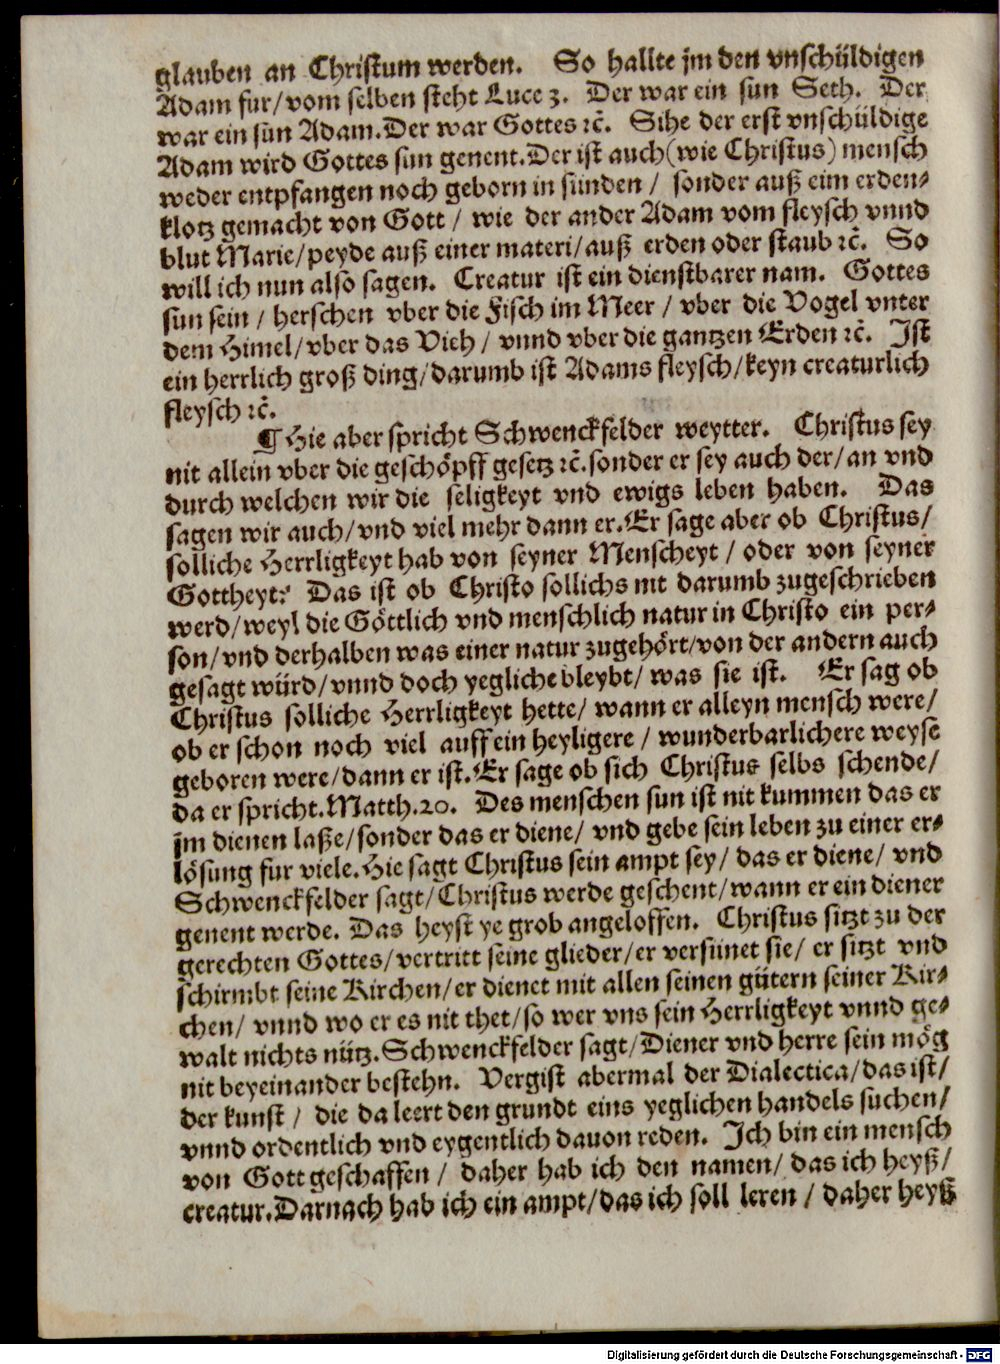 glauben an Christum werden. So hallte jm den vnschüldigen
Adam fur/vom selben steht Luce 3. Der war ein sun Seth. Der
war ein sün Adam. Der war Gottes ꝛc̃. Sihe der erst vnschüldige
Adam wird Gottes sun genent. Der ist auch (wie Christus) mensch
weder entpfangen noch geborn in sünden / sonder auß eim erden-
klotz gemacht von Gott / wie der ander Adam vom fleysch vnnd
blut Marie/peyde auß einer materi/auß erden oder staub ꝛc̃. So
will ich nun also sagen. Creatur ist ein dienstbarer nam. Gottes
sun sein / herschen vber die Fisch im Meer / vber die Vogel vnter
dem Himel/vber das Vieh / vnnd vber die gantzen Erden ꝛc̃. Ist
ein herrlich groß ding/darumb ist Adams fleysch/keyn creaturlich
fleysch ꝛc̃.
¶ Hie aber spricht Schwenckfelder weytter. Christus sey
nit allein vber die geschöpff gesetz ꝛc̃. sonder er sey auch der/an vnd
durch welchen wir die seligkeyt vnd ewigs leben haben. Das
sagen wir auch/vnd viel mehr dann er. Er sage aber ob Christus/
solliche Herrligkeyt hab von seyner Menscheyt / oder von seyner
Gottheyt? Das ist ob Christo sollichs nit darumb zugeschrieben
werd/weyl die Göttlich vnd menschlich natur in Christo ein per-
son/vnd derhalben was einer natur zugehört/von der andern auch
gesagt würd/vnnd doch yegliche bleybt/ was sie ist. Er sag ob
Christus solliche Herrligkeyt hette/ wann er alleyn mensch were/
ob er schon noch viel auff ein heyligere / wunderbarlichere weyse
geboren were/dann er ist. Er sage ob sich Christus selbs schende/
da er spricht. Matth. 20. Des menschen sun ist nit kummen das er
jm dienen laße/sonder das er diene/ vnd gebe sein leben zu einer er-
lösung fur viele. Hie sagt Christus sein ampt sey/ das er diene/ vnd
Schwenckfelder sagt/Christus werde geschent/wann er ein diener
genent werde. Das heyst ye grob angeloffen. Christus sitzt zu der
gerechten Gottes/vertritt seine glieder/er versünet sie/ er sitzt vnd
schirmbt seine Kirchen/er dienet mit allen seinen gütern seiner Kir-
chen/ vnnd wo er es nit thet/so wer vns sein Herrligkeyt vnnd ge-
walt nichts nütz. Schwenckfelder sagt/Diener vnd herre sein mög
nit beyeinander bestehn. Vergist abermal der Dialectica/das ist/
der kunst / die da leert den grundt eins yeglichen handels suchen/
vnnd ordentlich vnd eygentlich dauon reden. Ich bin ein mensch
von Gott geschaffen / daher hab ich den namen/ das ich heyß/
creatur. Darnach hab ich ein ampt/das ich soll leren / daher heyß
Digitalisierung gefördert durch die Deutsche Forschungsgemeinschaft - DFG